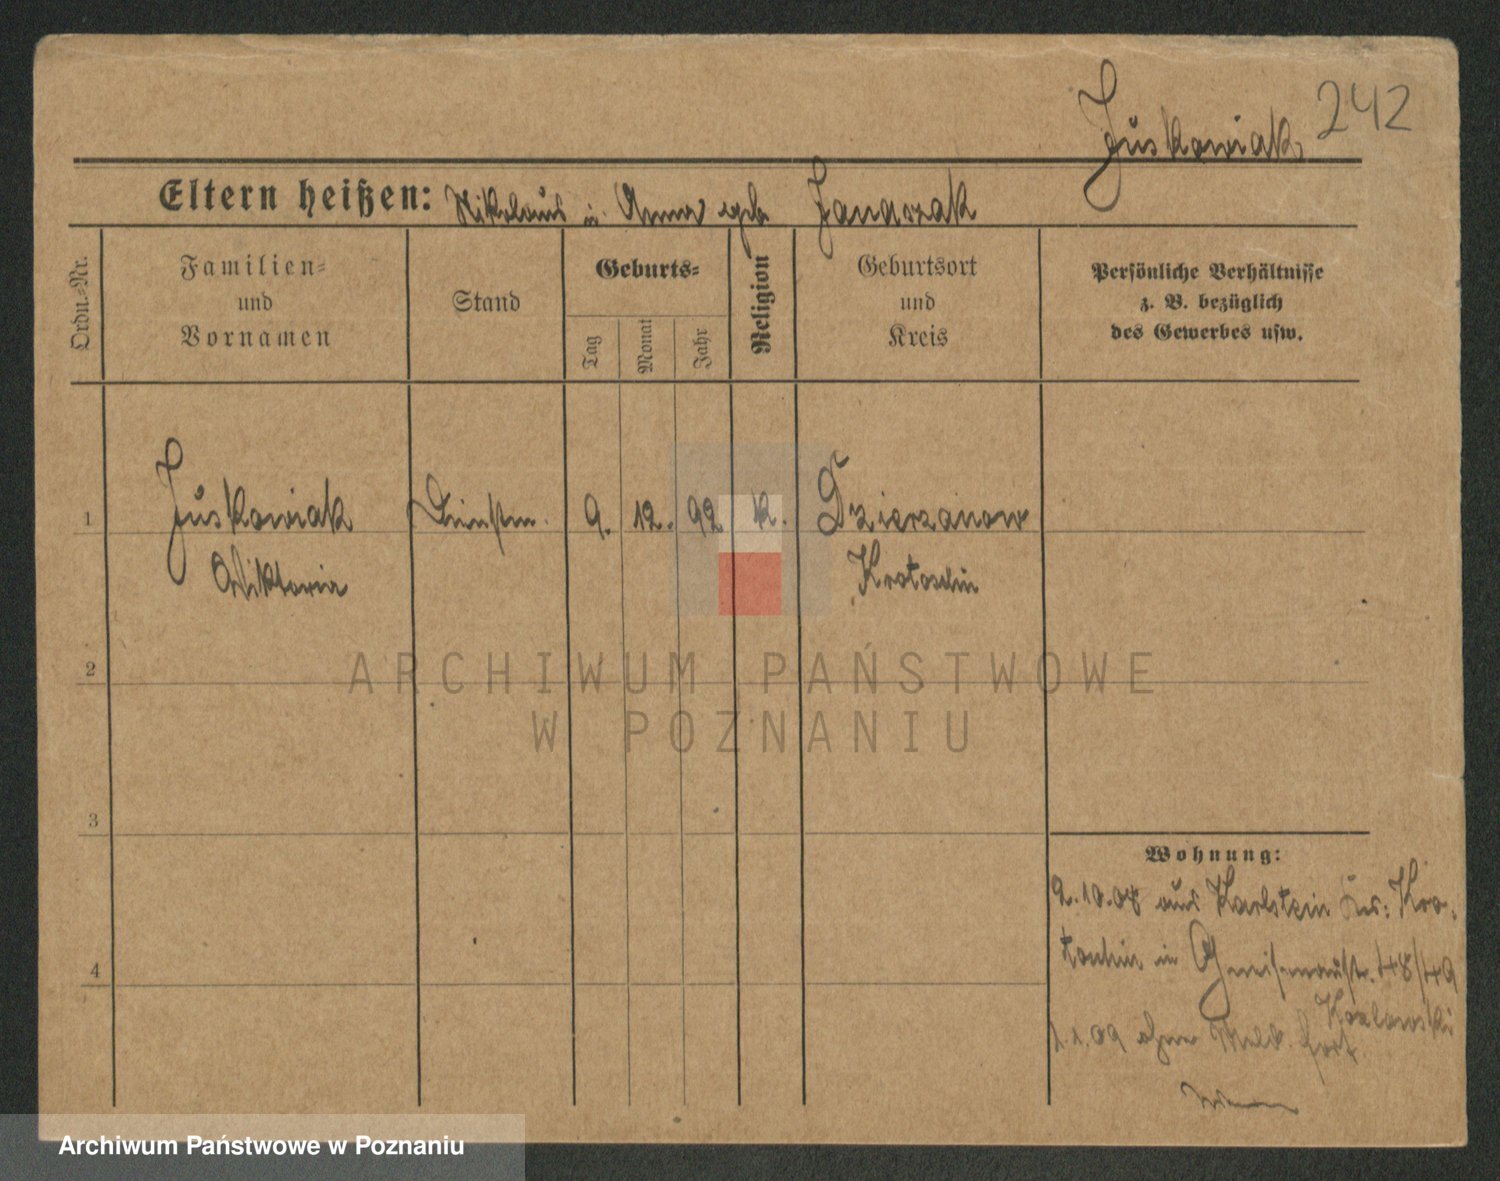 Juskowiak 242
Eltern heißen: Nikolaus u. Anna geb Janaszak
Ordn.=Nr.
Familien=
und
Vornamen
Stand
Geburts=
Tag
Monat
Jahr
Religion
Geburtsort
und
Kreis
Persönliche Verhältnisse
z. B. bezüglich
des Gewerbes usw.
1 Juskowiak Dienstm. 9. 12. 92 k. Dzierzanow
Wiktoria Krotoschin
2
ARCHIWUM PAŃSTWOWE
W POZNANIU
3
Wohnung:
2.10.08 aus Karlstein Krs: Kro=
toschin in Gneisenaustr. 48/49
Kozlowski
1.1.09 ohne Meld. fort.
4
Archiwum Państwowe w Poznaniu